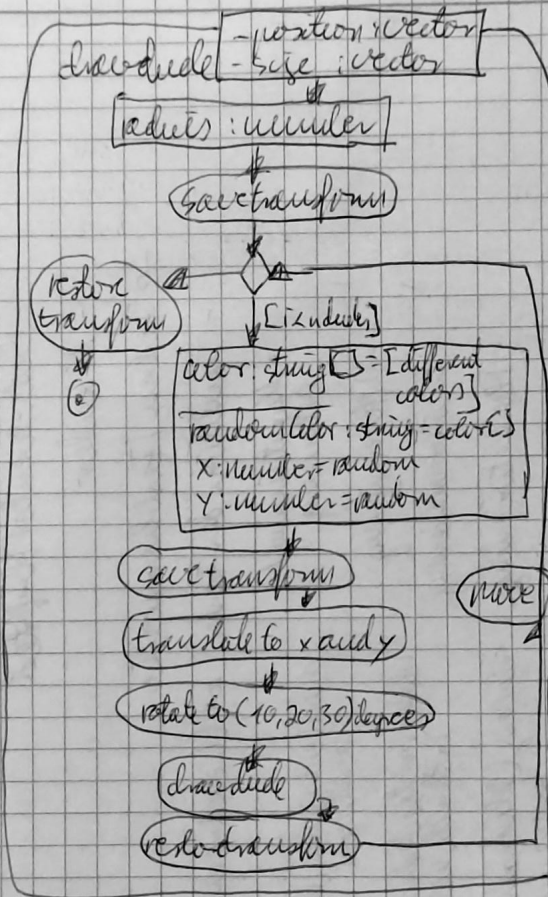 drawdude
-position:vector
-size :vector
radius : number
save transform
restore
transform
[i<ndudes]
color: string[]=[different
colors]
randomColor: string=color[]
X:number=random
Y:number=random
save transform
translate to x and y
move
rotate to (10,20,30) degrees
drawdude
restore transform